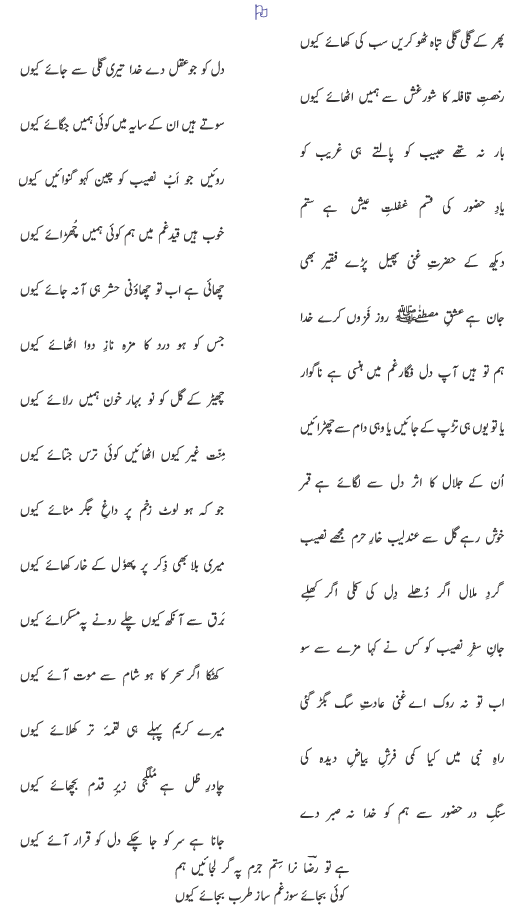 پھر کے گلی گلی تباہ ٹھوکریں سب کی کھائے کیوں
دل کو جو عقل دے خدا تیری گلی سے جائے کیوں
رخصتِ قافلہ کا شور غش سے ہمیں اٹھائے کیوں
سوتے ہیں ان کے سایہ میں کوئی ہمیں جگائے کیوں
بار نہ تھے حبیب کو پالتے ہی غریب کو
روئیں جو اَبْ نصیب کو چین کہو گنوائیں کیوں
یادِ حضور کی قسم غفلتِ عیش ہے ستم
خوب ہیں قیدِ غم میں ہم کوئی ہمیں چُھڑائے کیوں
دیکھ کے حضرتِ غنی پھیل پڑے فقیر بھی
چھائی ہے اب تو چھاؤنی حشر ہی آ نہ جائے کیوں
جان ہے عشقِ مصطفیٰ ﷺ روز فَزوں کرے خدا
جس کو ہو درد کا مزہ نازِ دوا اٹھائے کیوں
ہم تو ہیں آپ دل فگار غم میں ہنسی ہے ناگوار
چھیڑ کے گل کو نو بہار خون ہمیں رلائے کیوں
یا تو یوں ہی تڑپ کے جائیں یا وہی دام سے چھڑائیں
مِنّت غیر کیوں اٹھائیں کوئی ترس جتائے کیوں
اُن کے جلال کا اثر دل سے لگائے ہے قمر
جو کہ ہو لوٹ زخم پر داغِ جگر مٹائے کیوں
خوش رہے گل سے عندلیب خارِ حرم مجھے نصیب
میری بلا بھی ذِکر پر پھول کے خار کھائے کیوں
گردِ ملال اگر دُھلے دِل کی کلی اگر کھلے
بَرق سے آنکھ کیوں جلے رونے پہ مسکرائے کیوں
جانِ سفر نصیب کو کس نے کہا مزے سے سو
کھٹکا اگر سحر کا ہو شام سے موت آئے کیوں
اب تو نہ روک اے غنی عادتِ سگ بگڑ گئی
میرے کریم پہلے ہی لقمۂ تر کھلائے کیوں
راہِ نبی میں کیا کمی فرشِ بیاضِ دیدہ کی
چادرِ ظل ہے مَلْگَجی زیرِ قدم بچھائے کیوں
سنگِ در حضور سے ہم کو خدا نہ صبر دے
جانا ہے سر کو جا چکے دل کو قرار آئے کیوں
ہے تو رضاؔ نرا ستم جرم پہ گر لجائیں ہم
کوئی بجائے سوزِ غم ساز طرب بجائے کیوں